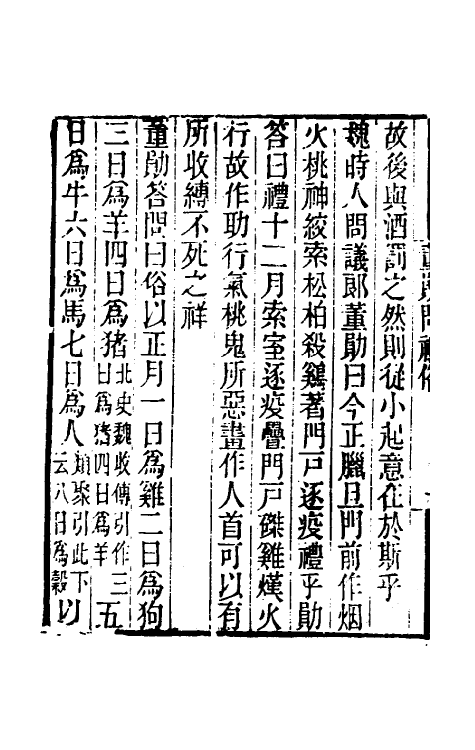 故後與酒罰之然則從小起意在於斯乎
魏時人問議郎董勛曰今正臘旦門前作烟
火桃神絞索松柏殺鷄著門戸逐疫禮乎勛
答曰禮十二月索室逐疫釁門戸磔雞熯火
行故作助行氣桃鬼所惡畫作人首可以有
所收縛不死之祥
董勛答問曰俗以正月一日為雞二日為狗
三日為羊四日為猪北史魏收傳引作三日為猪四日為羊五
日為牛六日為馬七日為人類聚引此下云八日為穀以
董勛問禮俗